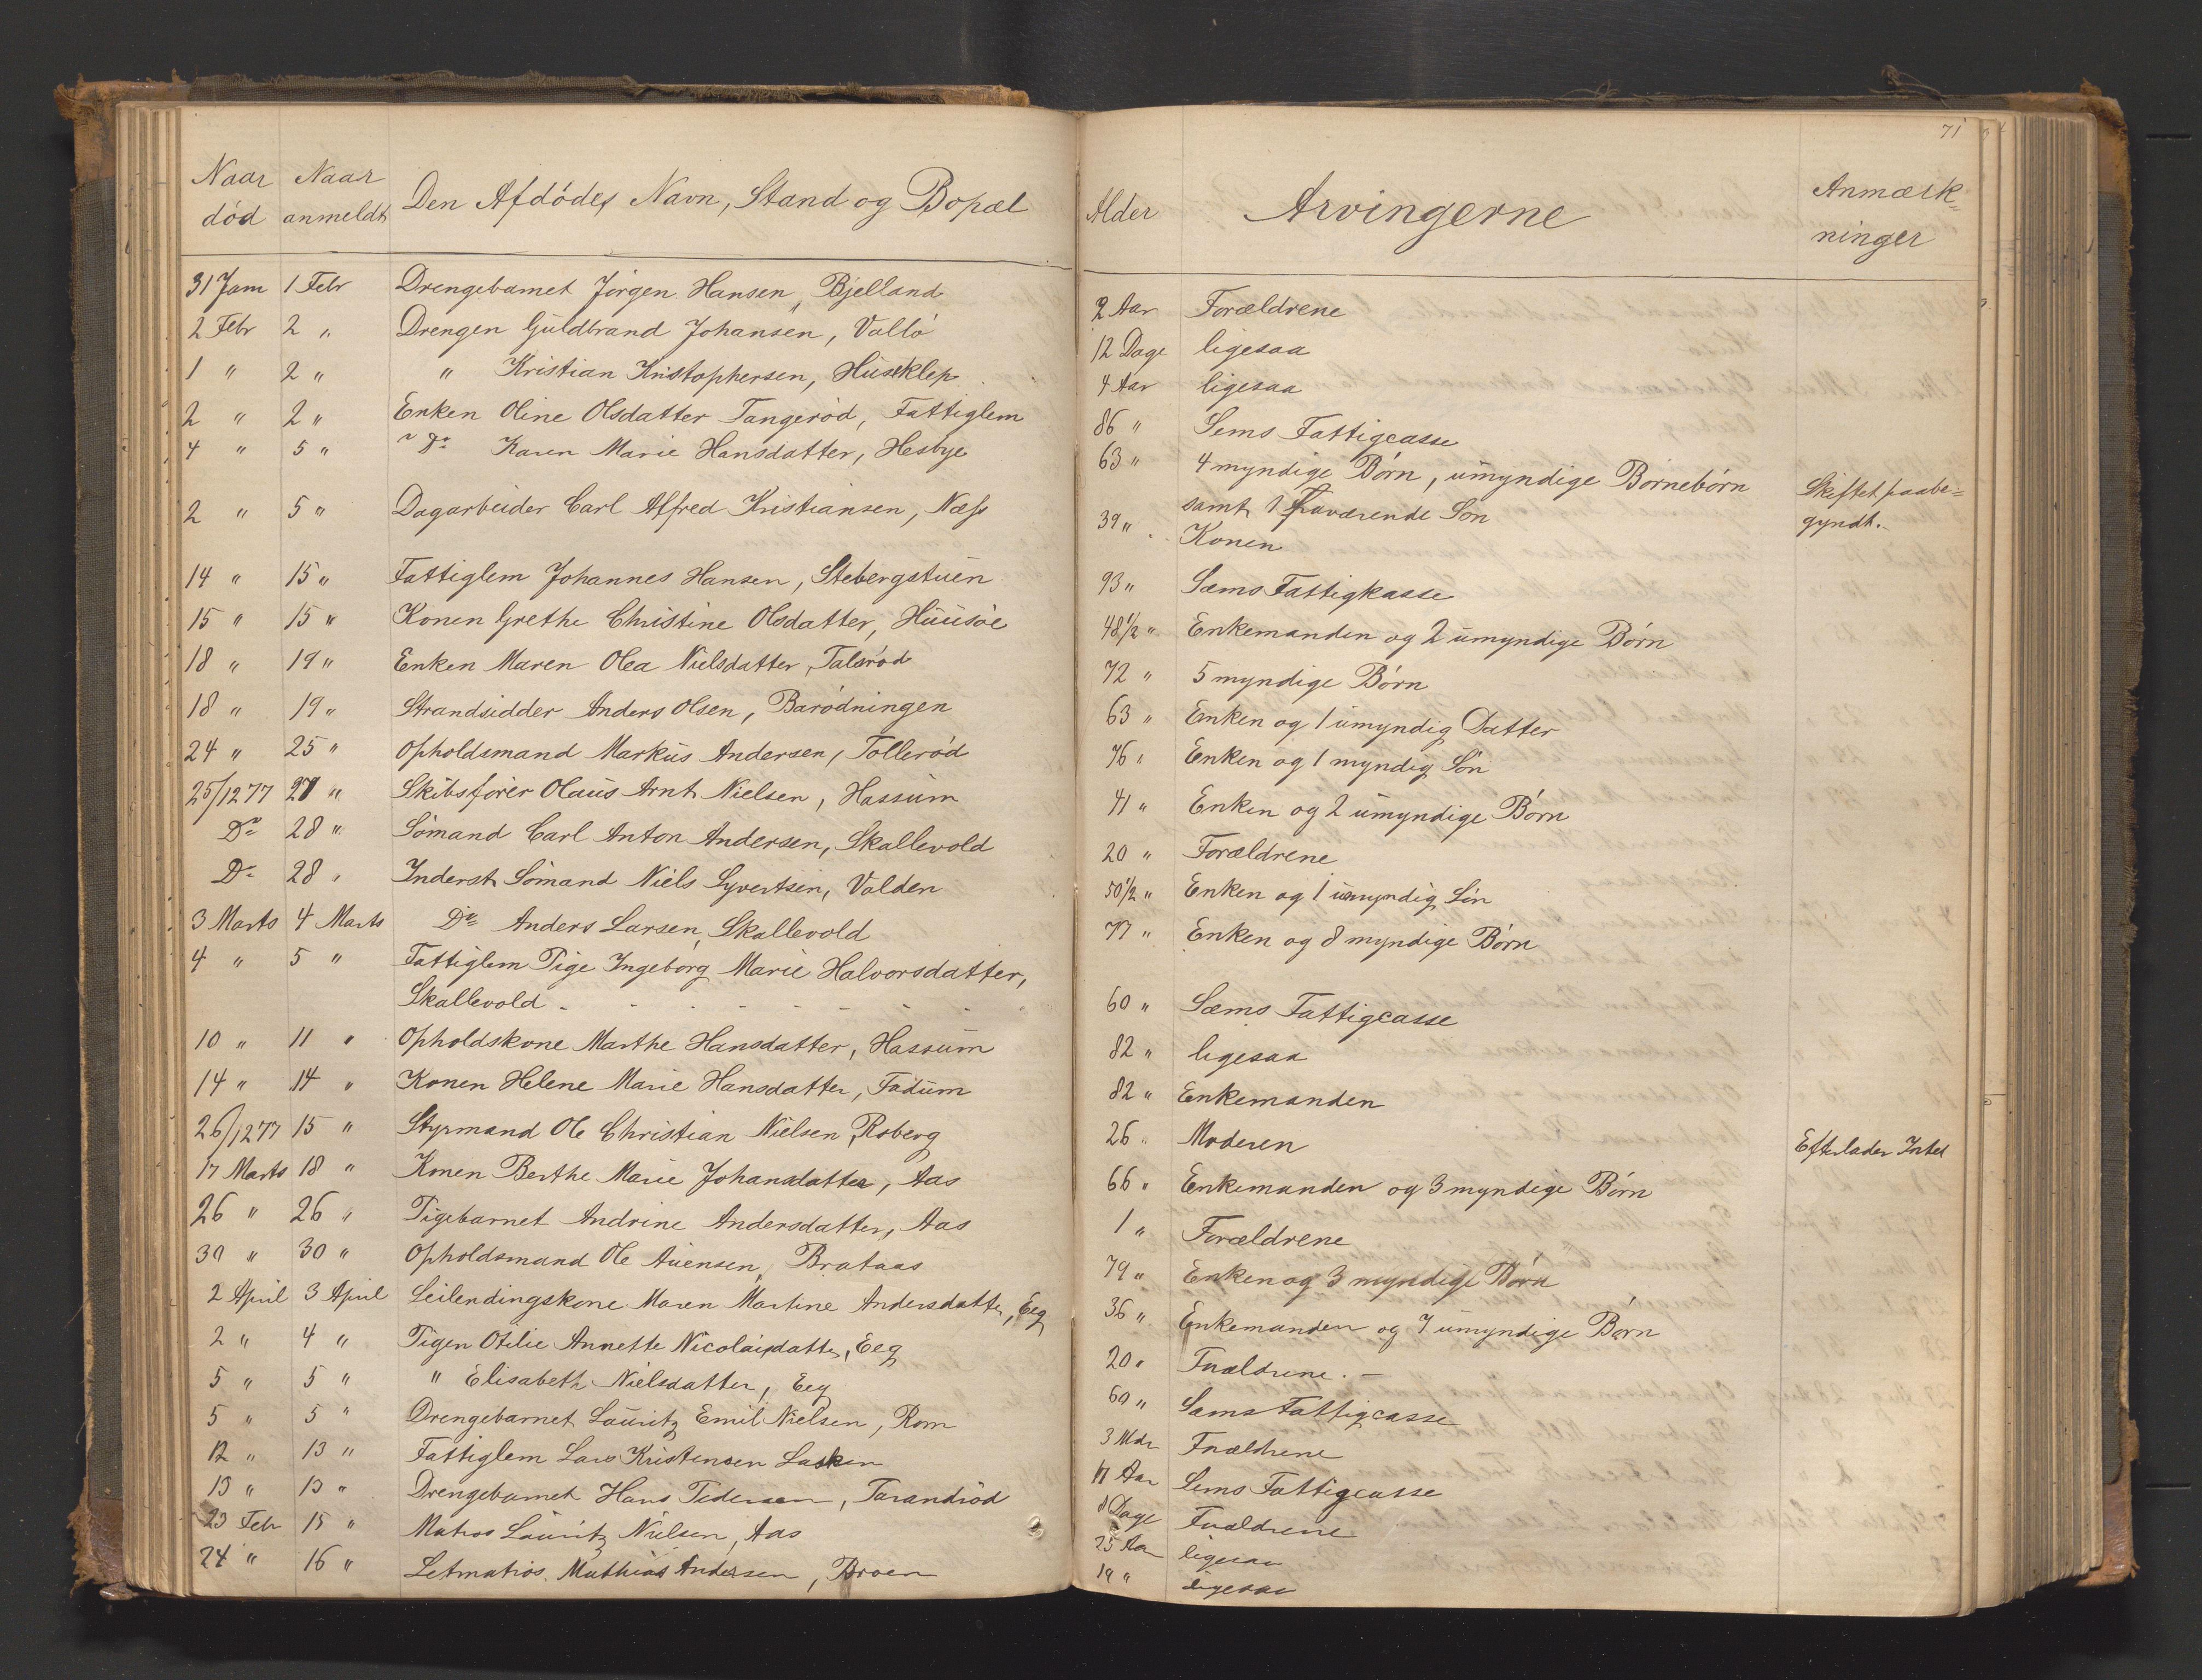 71
Naar død
Naar anmeldt
Den Afdødes Navn, Stand og Bopæl
Alder
Arvingerne
Anmærk-
ninger
31 Jan 1 Febr Drengebarnet Jørgen Hansen, Bjelland 2 Aar Forældrene
2 Febr 2 " Drengen Guldbrand Johansen, Vallø 12 Dage ligesaa
1 " 2 " " Kristian Kristophersen, Huseklep 4 Aar ligesaa
2 " 2 " Enken Oline Olsdatter Tangerød, Fattiglem 86 " Sems Fattigcasse
4 " 5 " " Do Karen Marie Hansdatter, Hesbye 63 " 4 myndige Børn, umyndige Børnebørn Skiftet paabe=
samt 1 fraværende Søn gyndt.
2 " 5 " Dagarbeider Carl Alfred Kristiansen, Næss 39 " Konen
14 " 15 " Fattiglem Johannes Hansen, Stebergstuen 93 " Sæms Fattigkasse
15 " 15 " Konen Grethe Christine Olsdatter, Huusøe 48 1/2 " Enkemanden og 2 umyndige Børn
18 " 19 " Enken Maren Olea Nielsdatter, Talsrød 72 " 5 myndige Børn
18 " 19 " Strandsidder Anders Olsen, Barødningen 63 " Enken og 1 umyndig Datter
24 " 25 " Opholdsmand Markus Andersen, Tollerød 76 " Enken og 1 myndig Søn
25/12 77 27 " Skibsfører Olaus Arnt Nielsen, Hassum 41 " Enken og 2 umyndige Børn
Do 28 " Sømand Carl Anton Andersen, Skallevold 20 " Forældrene
Do 28 " Inderst Sømand Niels Syvertsen, Valden 50 1/2 " Enken og 1 umyndig Søn
3 Marts 4 Marts Do Anders Larsen, Skallevold 77 " Enken og 8 myndige Børn
4 " 5 " Fattiglem Pige Ingeborg Marie Halvorsdatter,
Skallevold 60 " Sæms Fattigcasse
10 " 11 " Opholdskone Marthe Hansdatter, Hassum 82 " ligesaa
14 " 14 " Konen Helene Marie Hansdatter, Fadum 82 " Enkemanden
26/12 77 15 " Styrmand Ole Christian Nielsen, Roberg 26 " Moderen Efterlader Intet
17 Marts 18 " Konen Berthe Marie Johansdatter, Aas 66 " Enkemanden og 3 myndige Børn
26 " 26 " Pigebarnet Andrine Andersdatter, Aas 1 " Forældrene
30 " 30 " Opholdsmand Ole Auensen, Brataas 79 " Enken og 3 myndige Børn
2 April 3 April Leilendingskone Maren Martine Andersdatter, Eeg 36 " Enkemanden og 7 umyndige Børn
2 " 4 " Pigen Otilie Annette Nicolaisdatter, Eeg 20 " Forældrene. —
5 " 5 " " Elisabeth Nielsdatter, Eeg 60 " Sæms Fattigcasse
5 " 5 " Drengebarnet Lauritz Emil Nielsen, Rom 3 Mdr Forældrene
12 " 13 " Fattiglem Lars Kristensen Lasken Aar Sems Fattigcasse
13 " 13 " Drengebarnet Hans Pedersen, Tarandrød 8 Dage Forældrene
23 Febr 15 " Matros Lauritz Nielsen, Aas 25 Aar ligesaa
24 " 16 " Letmatros Mathias Andersen, Broen 19 " ligesaa